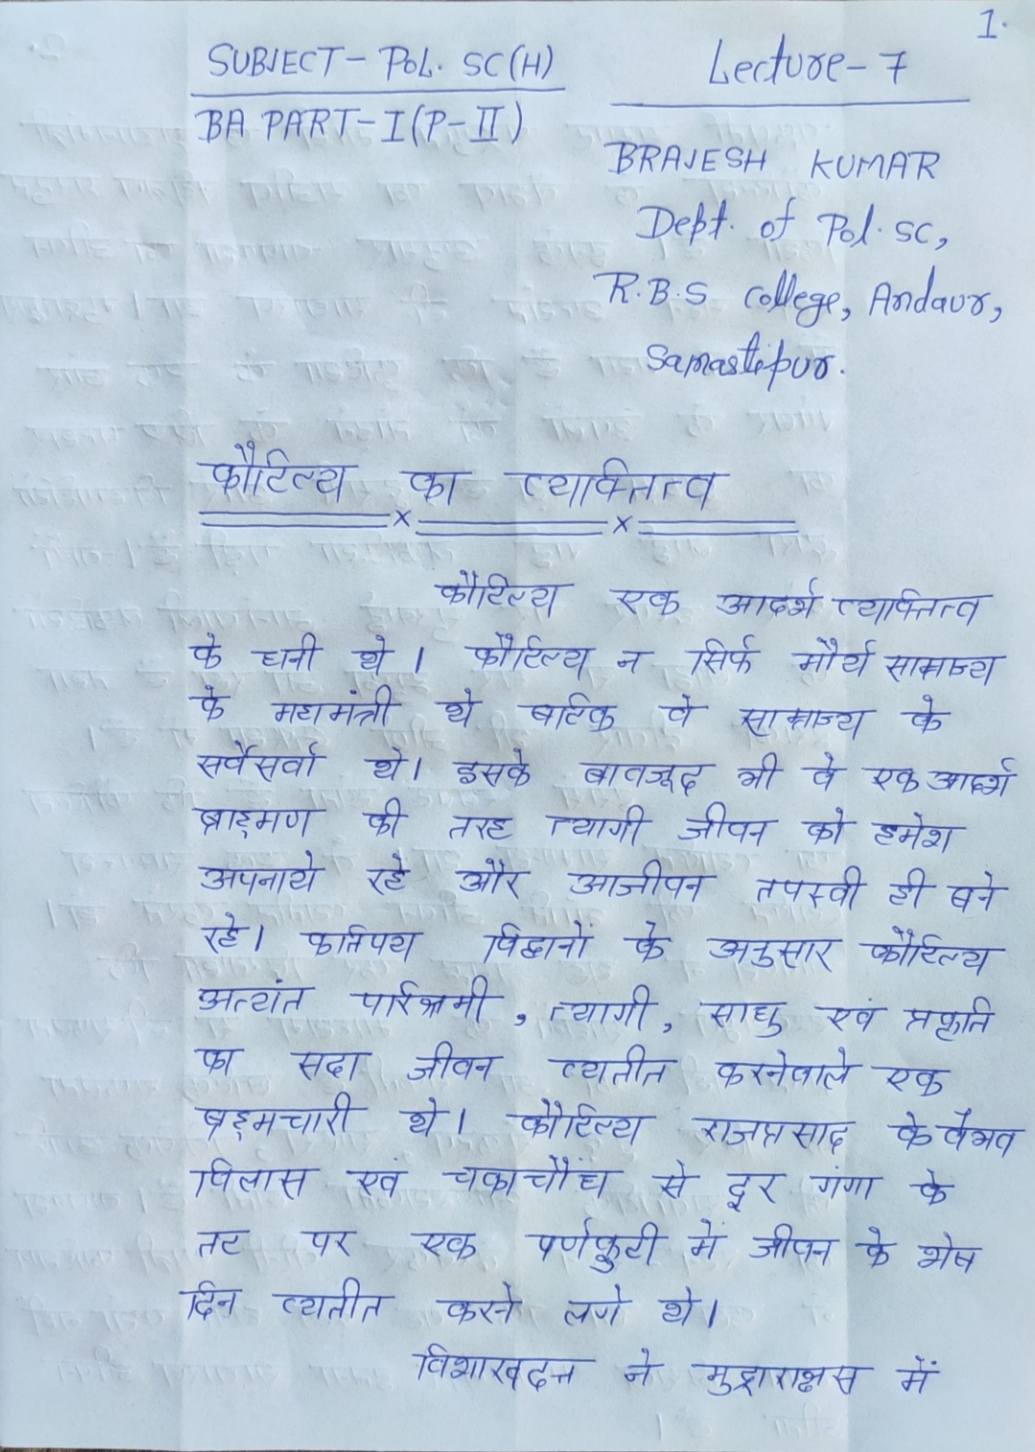 1.
SUBJECT- POL. SC(H)
Lecture-7
BA PART-I(P-II)
BRAJESH KUMAR
Dept. of Pol. sc,
R.B.S college, Andaur,
Samastipur.
कौटिल्य का व्यक्तित्व
कौटिल्य एक आदर्श व्यक्तित्व
के धनी थे। कौटिल्य न सिर्फ मौर्य साम्राज्य
के महामंत्री थे बल्कि वे साम्राज्य के
सर्वेसर्वा थे। इसके बावजूद भी वे एक आदर्श
ब्राह्मण की तरह त्यागी जीवन को हमेश
अपनाये रहे और आजीवन तपस्वी ही बने
रहे। कतिपय विद्वानों के अनुसार कौटिल्य
अत्यंत परिश्रमी, त्यागी, साधु एवं प्रकृति
का सदा जीवन व्यतीत करनेवाले एक
ब्रह्मचारी थे। कौटिल्य राजप्रसाद के वैभव
विलास एवं चकाचौंध से दूर गंगा के
तट पर एक पर्णकुटी में जीवन के शेष
दिन व्यतीत करने लगे थे।
विशाखदत्त ने मुद्राराक्षस में